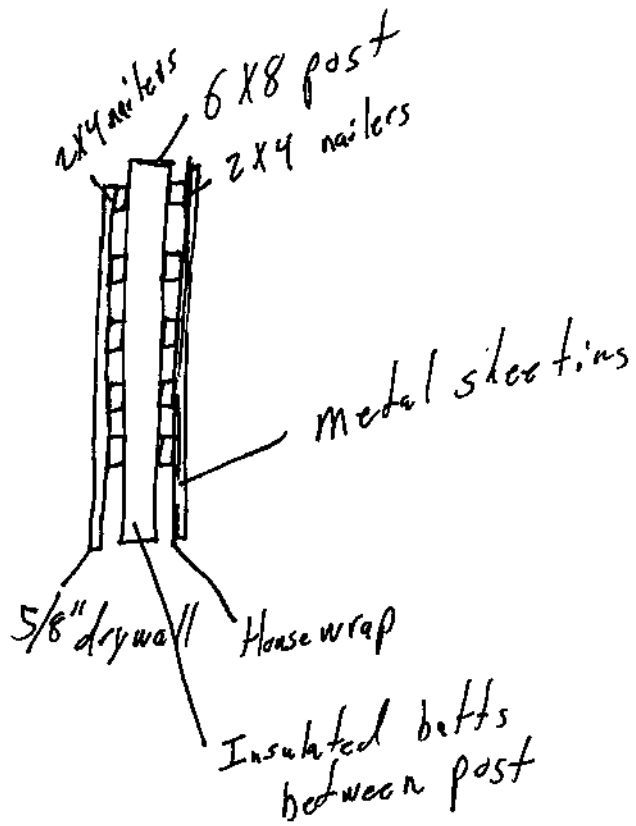 2X4 nailers
6X8 post
2X4 nailers
Metal sheeting
5/8" drywall
House wrap
Insulated batts
between post